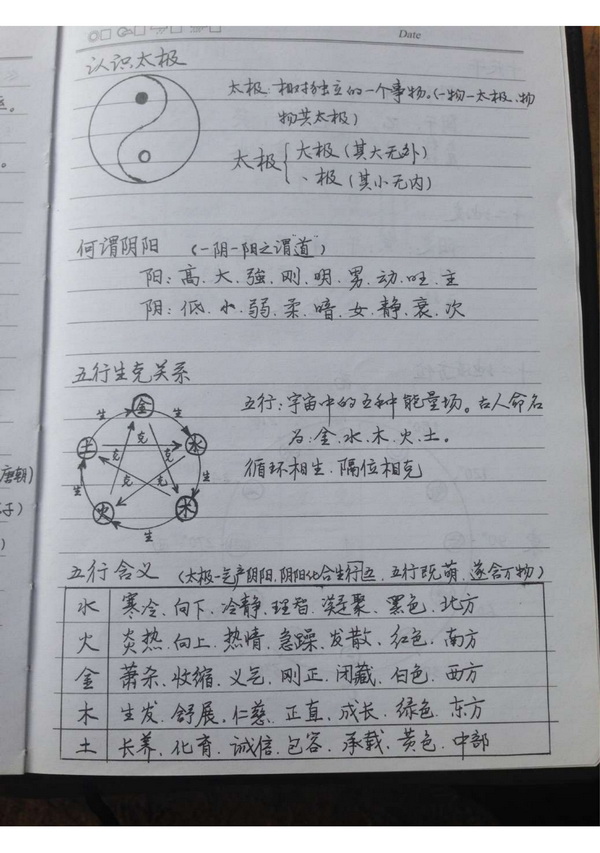 Date
认识太极
太极:相对独立的一个事物。(一物一太极、物
物共太极)
太极
大极(其大无外)
、极(其小无内)
何谓阴阳 (一阴一阳之谓"道")
阳:高、大、強、刚、明、男、动、旺、主
阴:低、小、弱、柔、暗、女、静、衰、次
五行生克关系
金
水
木
火
土
生
生
生
生
生
克
克
克
克
克
五行:宇宙中的五种能量场。古人命名
为:金、水、木、火、土。
循环相生、隔位相克
五行含义 (太极一气产阴阳,阴阳化合生行五,五行既萌,遂含万物)
水 寒冷、向下、冷静、理智、凝聚、黑色、北方
火 炎热、向上、热情、急躁、发散、红色、南方
金 萧杀、收缩、义气、刚正、闭藏、白色、西方
木 生发、舒展、仁慈、正直、成长、绿色、东方
土 长养、化育、诚信、包容、承载、黄色、中部
唐朝)
子)